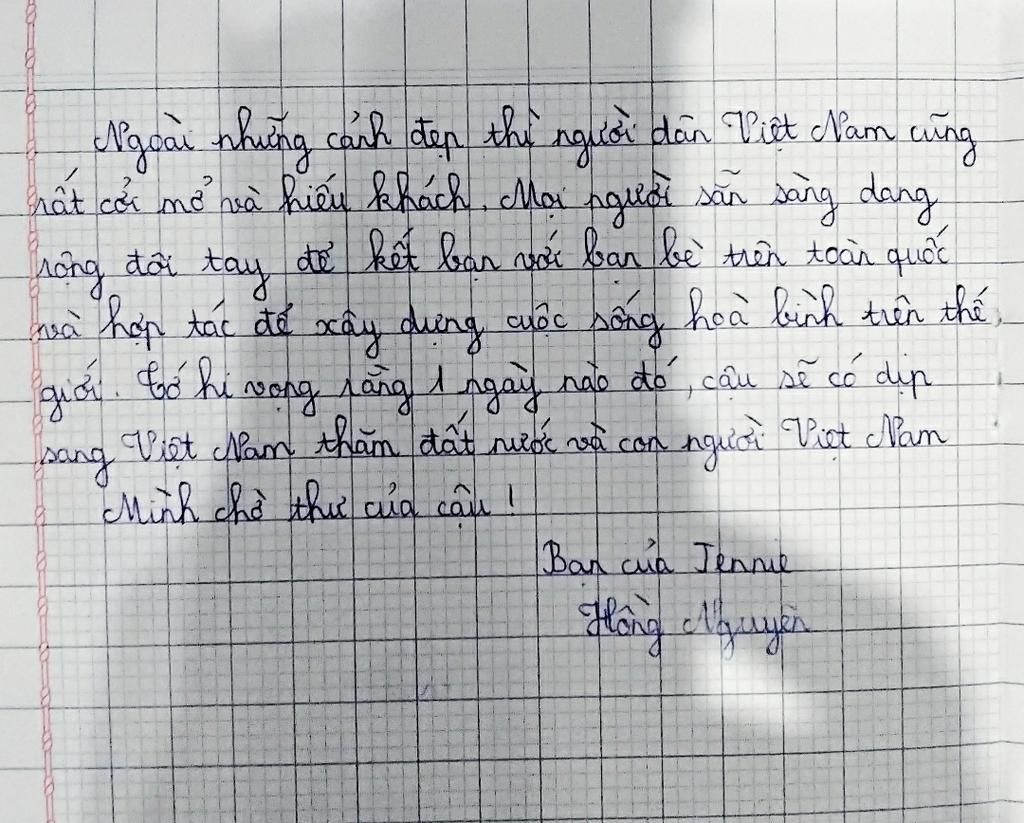 Ngoài những cảnh đẹp thì người dân Việt Nam cũng
rất cởi mở và hiếu khách. Mọi người sẵn sàng dang
rộng đôi tay để kết bạn với bạn bè trên toàn quốc
và hợp tác để xây dựng cuộc sống hoà bình trên thế
giới. Tớ hi vọng rằng 1 ngày nào đó, cậu sẽ có dịp
sang Việt Nam thăm đất nước và con người Việt Nam
Mình chờ thư của cậu !
Bạn của Jennie
Hồng Nguyên